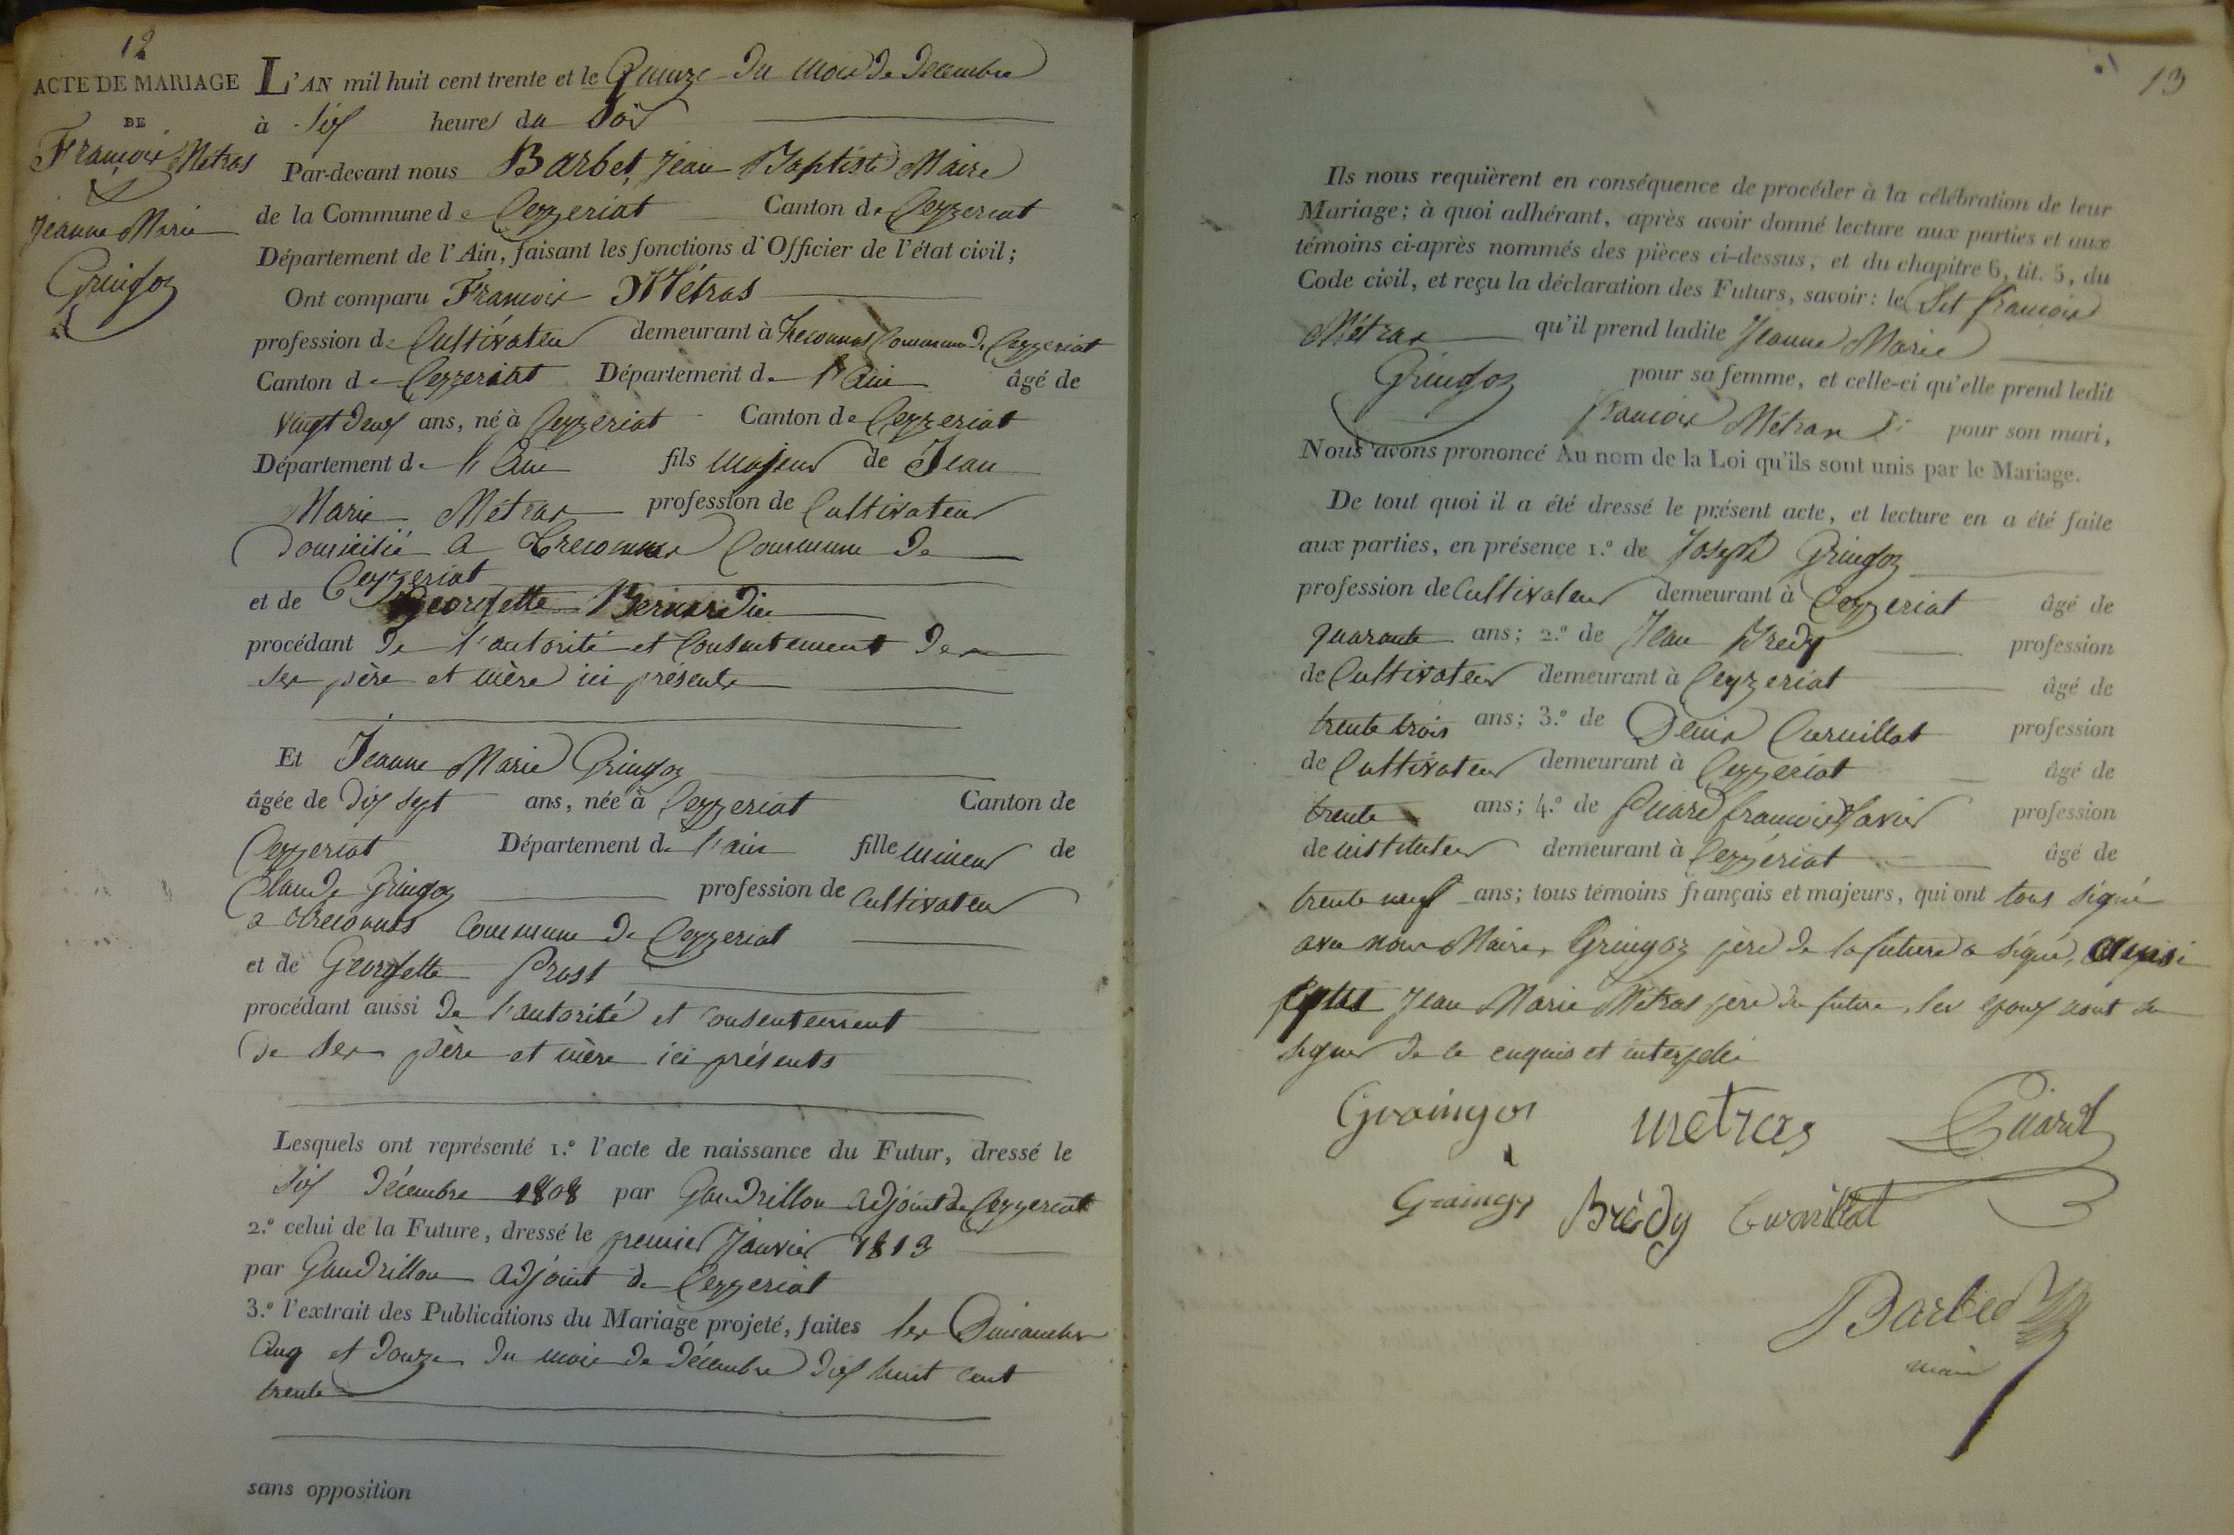 12
ACTE DE MARIAGE
DE
François Métras
&
Jeanne Marie
Gringoz
L'AN mil huit cent trente et le Quinze du mois de Décembre
à six heures du Soir
Par-devant nous Barbet, Jean Baptiste Maire
de la Commune de Ceyzeriat Canton de Ceyzeriat
Département de l'Ain, faisant les fonctions d'Officier de l'état civil;
Ont comparu François Métras
profession de Cultivateur demeurant à Treconnas Commune de Ceyzeriat
Canton de Ceyzeriat Département de l'Ain âgé de
vingt deux ans, né à Ceyzeriat Canton de Ceyzeriat
Département de l'Ain fils majeur de Jean
Marie Métras profession de Cultivateur
Domicilié a Treconnas Commune de
Ceyzeriat
et de Georgette Bernardin
procédant de l'autorité et Consentement de
ses père et mère ici présents
Et Jeanne Marie Gringoz
âgée de dix sept ans, née à Ceyzeriat Canton de
Ceyzeriat Département de l'ain fille mineur de
Claude Gringoz profession de Cultivateur
a Treconnas Commune de Ceyzeriat
et de Georgette Prost
procédant aussi de l'autorité et consentement
de ses père et mère ici présents
Lesquels ont représenté 1.º l'acte de naissance du Futur, dressé le
six décembre 1808 par Gaudrillon adjoint de Ceyzeriat
2.º celui de la Future, dressé le premier Janvier 1813
par Gaudrillon adjoint de Ceyzeriat
3.º l'extrait des Publications du Mariage projeté, faites les Dimanches
Cinq et Douze du mois de Décembre dix huit cent
trente
sans opposition
13
Ils nous requièrent en conséquence de procéder à la célébration de leur
Mariage; à quoi adhérant, après avoir donné lecture aux parties et aux
témoins ci-après nommés des pièces ci-dessus, et du chapitre 6, tit. 5, du
Code civil, et reçu la déclaration des Futurs, savoir: le dit françois
Métras qu'il prend ladite Jeanne Marie
Gringoz pour sa femme, et celle-ci qu'elle prend ledit
françois Métras pour son mari,
Nous avons prononcé Au nom de la Loi qu'ils sont unis par le Mariage.
De tout quoi il a été dressé le présent acte, et lecture en a été faite
aux parties, en présence 1.º de Joseph Gringoz
profession de Cultivateur demeurant à Ceyzeriat âgé de
quarante ans; 2.º de Jean Bredy profession
de Cultivateur demeurant à Ceyzeriat âgé de
trente trois ans; 3.º de Denis Curnillat profession
de Cultivateur demeurant à Ceyzeriat âgé de
trente ans; 4.º de Quard françois Xavier profession
de instituteur demeurant à Ceyzériat âgé de
trente neuf ans; tous témoins français et majeurs, qui ont tous signé
avec nous Maire, Gringoz père de la future a signé,
Jean Marie Métras père du future, les epoux aont su
signer de ce enquis et interpelé
Graingon metras Quard
Graingz Brédy Curnillat
Barbet
maire